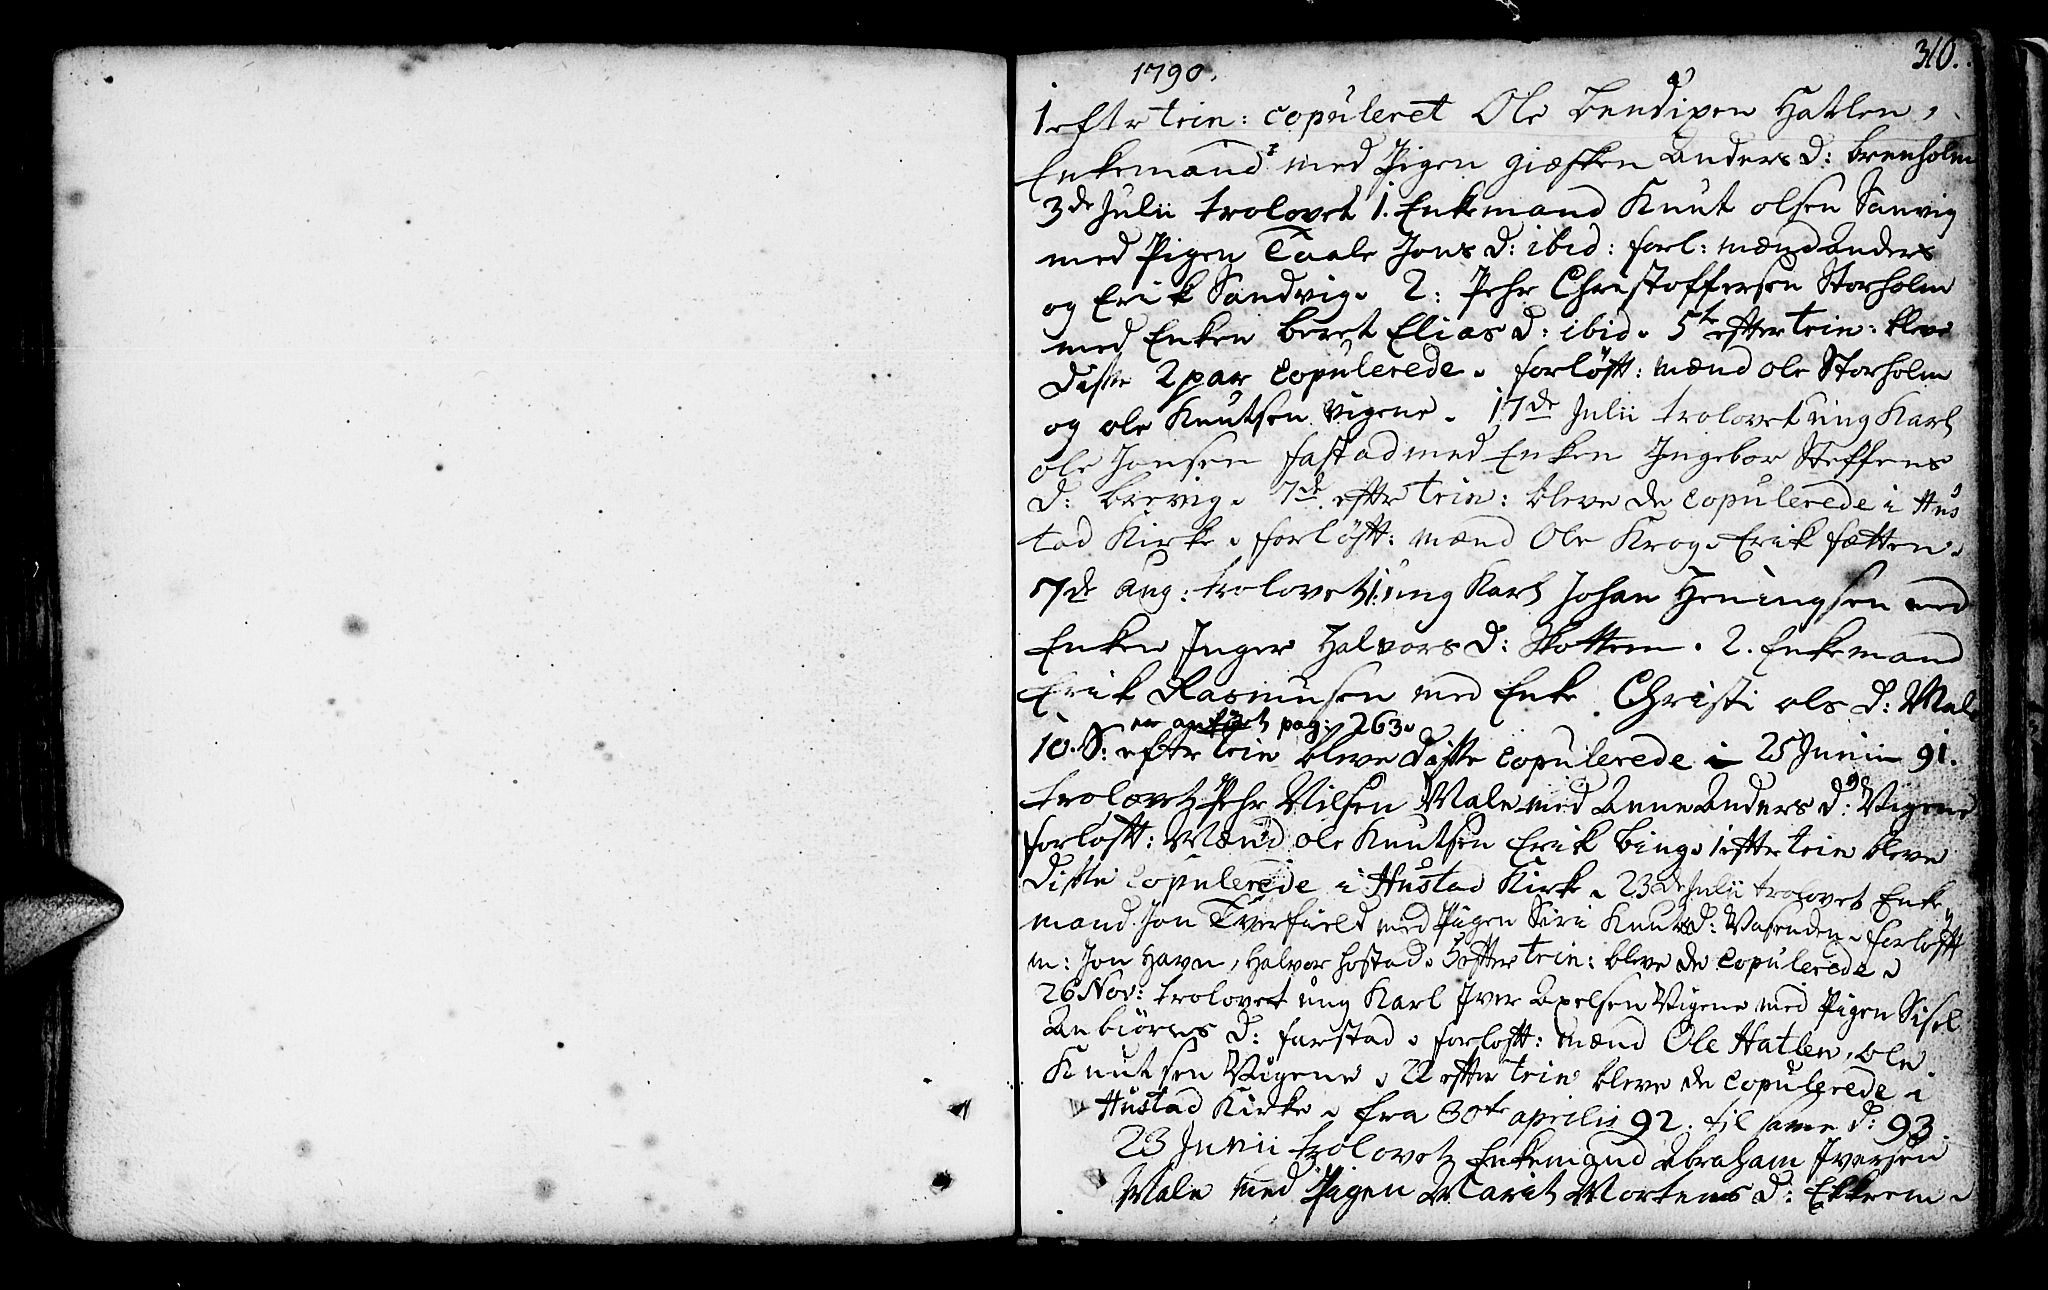 310.
1790.
1 eftr trin: copuleret Ole Bendixen Hatlen,
Enkemand med Pigen Giæsken Anders D: Breeholm
3de Julii trolovet 1. Enkemand Knut Olsen Sanvig
med Pigen Taale Jons D: ibid: forl: mænd Anders
og Erik Sandvig. 2: Pehr Christoffersen Storholm
med Enken Beret Elias D: ibid. 5te efter trin: bleve
disse 2 par copulerede. forlöfft: mænd Ole Storholm
og Ole Knutsen Vigene. 17de Julii trolovet ung Karl
Ole Jonsen Fastad med Enken Ingebor Steffens
D: Brevig. 7de eftr trin: bleve de copulerede i Hus
tad Kirke. forlöfft: mænd Ole Krog. Erik Sætten.
7de Aug: trolovet 1: ung Karl Johan Heningsen med
Enken Inger Halvors D: Skottem. 2. Enkemand
Erik Rasmusen med Enke Christi Ols D: Male
er anført pag: 263.
10. S: eftr trin bleve disse copulerede i 25 Junii 91.
trolovet Pehr Nilsen Male med Anne Anders D: Vigene
forlofft: Mænd Ole Knutsen Erik Bing. 1 eftr trin bleve
disse copulerede i Hustad Kirke. 23de Julii trolovet Enke
mand Jon Tverfield med Pigen Siri Knuts D: Vasenden. forlofft
m: Jon Havn, Halvor Hostad. 5 efter trin: bleve de copulerede.
26 Nov: trolovet ung Karl Iver Axelsen Vigene med Pigen Sisel
Anbiörns D: Farstad. forlofft: mænd Ole Hatlen, Ole
Knutsen Vigene. 22 efter trin bleve de copulerede i
Hustad Kirke. Fra 30te Aprilis 92. til same D: 93.
23 Junii trolovet Enkemand Abraham Iversen
Male med Pigen Marit Mortens D: Ekkrem.